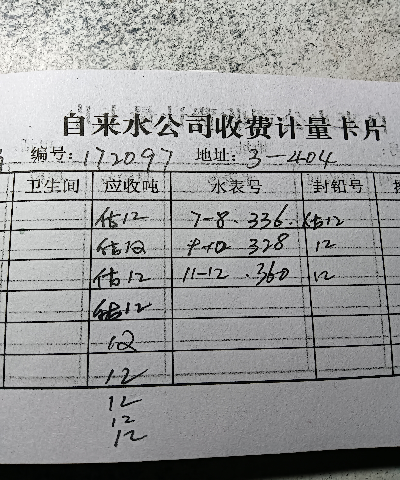 自来水公司收费计量卡片
编号: 172097 地址: 3-404
卫生间 应收吨 水表号 封铅号
估12 7-8. 336. 估12
估12 9-10 328 12
估12 11-12. 360 12
估12
12
12
12
12
12